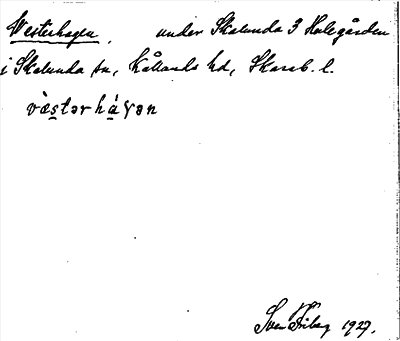 Westerhagen, under Skalunda 3 Hulegården
i Skalunda sn, Kållands hd, Skarab. l.
væ̀stərhá̀γən
Sven Friberg 1927.